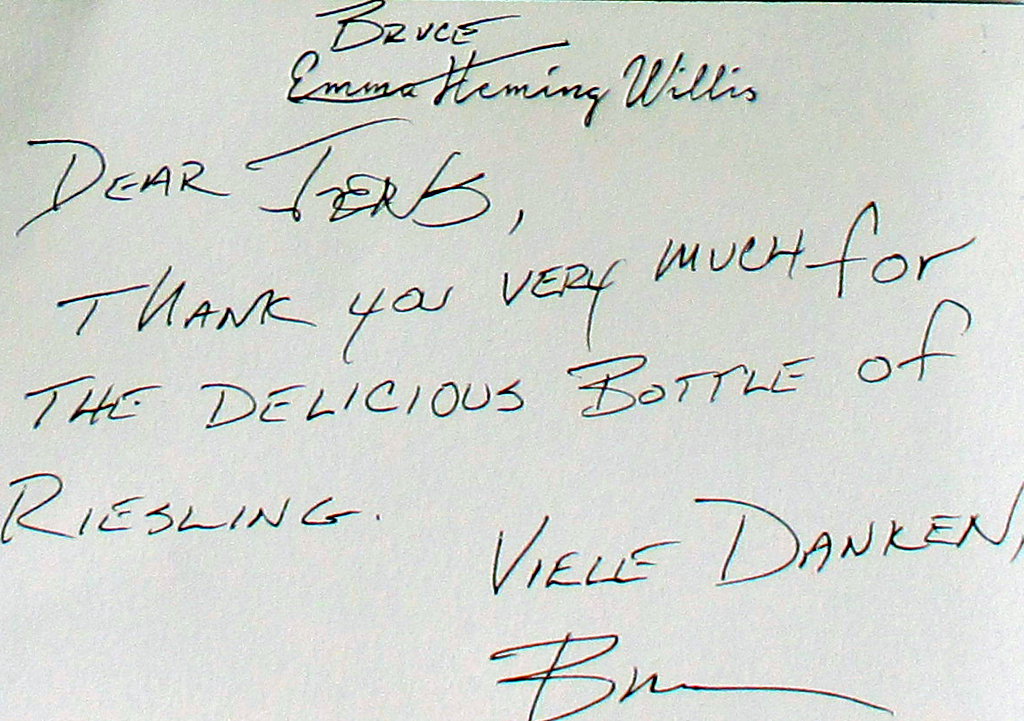 BRUCE
Emma Heming Willis
DEAR JENS,
THANK YOU VERY MUCH for
THE DELICIOUS BOTTLE of
RIESLING.
VIELE DANKEN,
Bruce